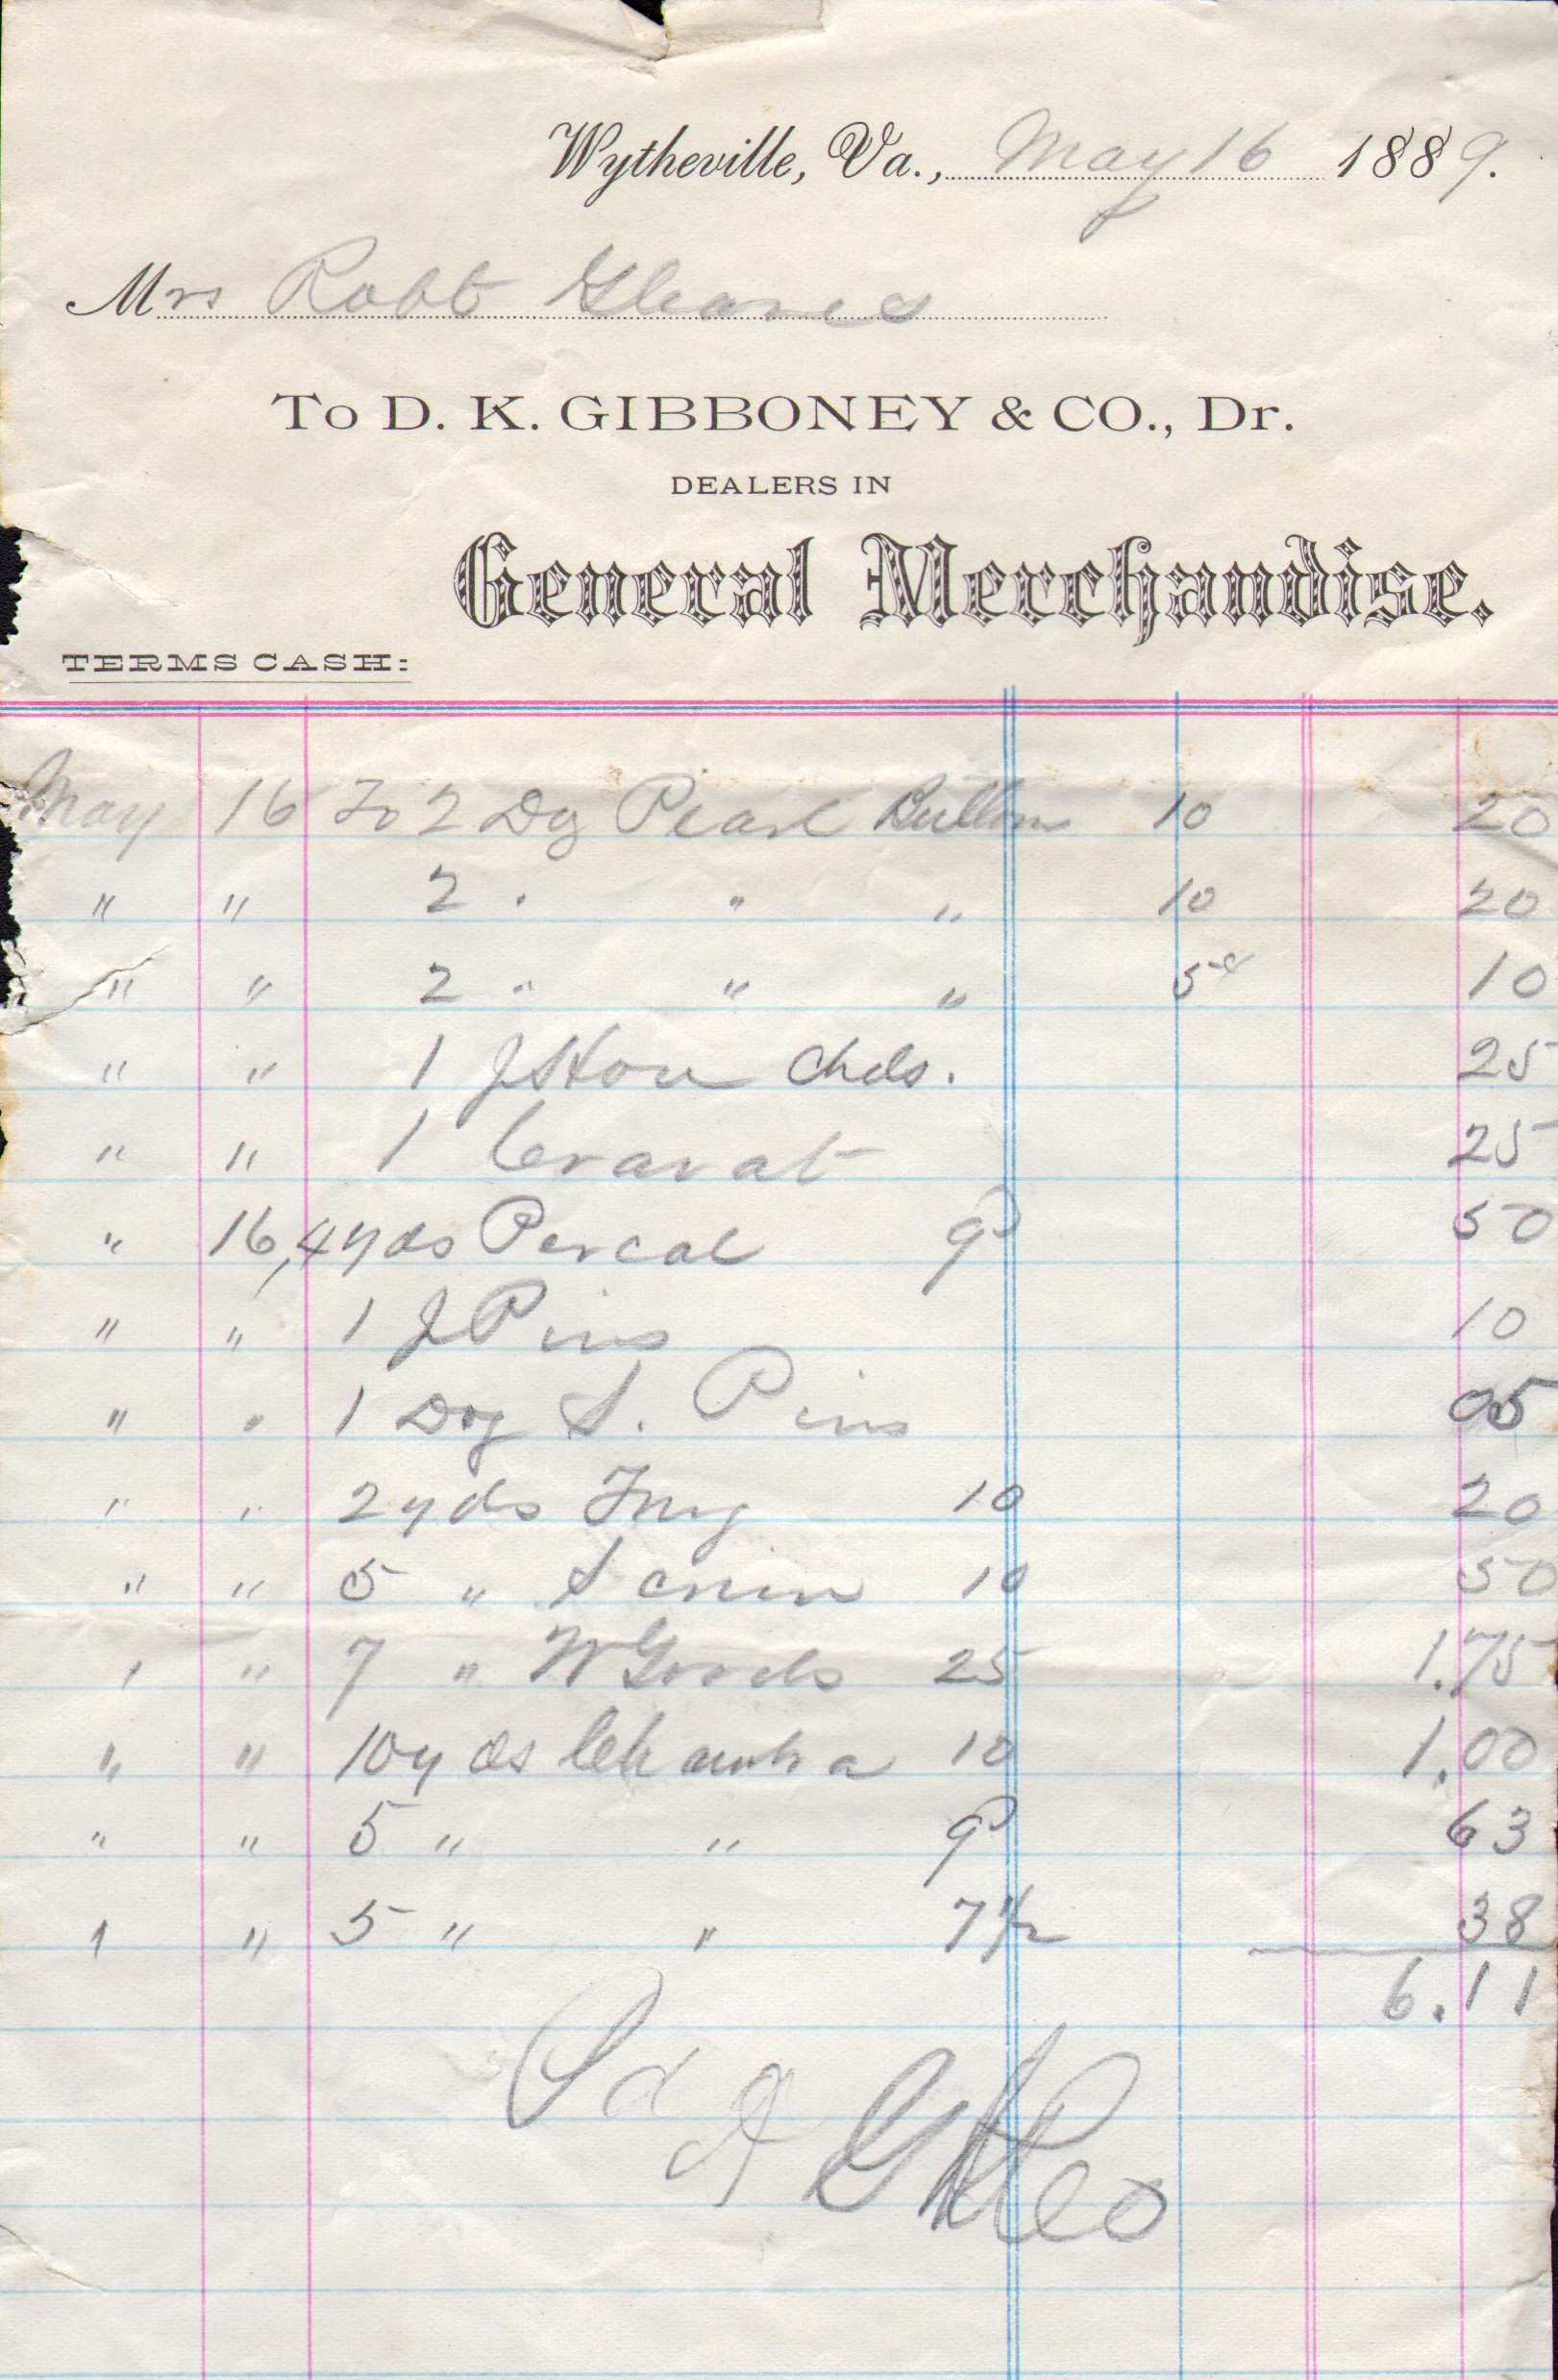 Wytheville, Va., May 16 1889.
Mrs Robt Gleaves
To D. K. GIBBONEY & CO., Dr.
DEALERS IN
General Merchandise.
TERMS CASH:
May 16 To 2 Doz Pearl Buttons 10 20
" " 2 " " " 10 20
" " 2 " " " 5¢ 10
" " 1 Chds. 25
" " 1 Cravat 25
" 16 4 yds Percal 50
" " 1 J Pins 10
" " 1 Doz S. Pins 05
" " 2 yds 10 20
" " 5 " 10 50
" " 7 " W Goods 25 1.75
" " 10 yds Chambra 10 1.00
" " 5 " " 63
" " 5 " " 7 1/2 38
6.11
Pd